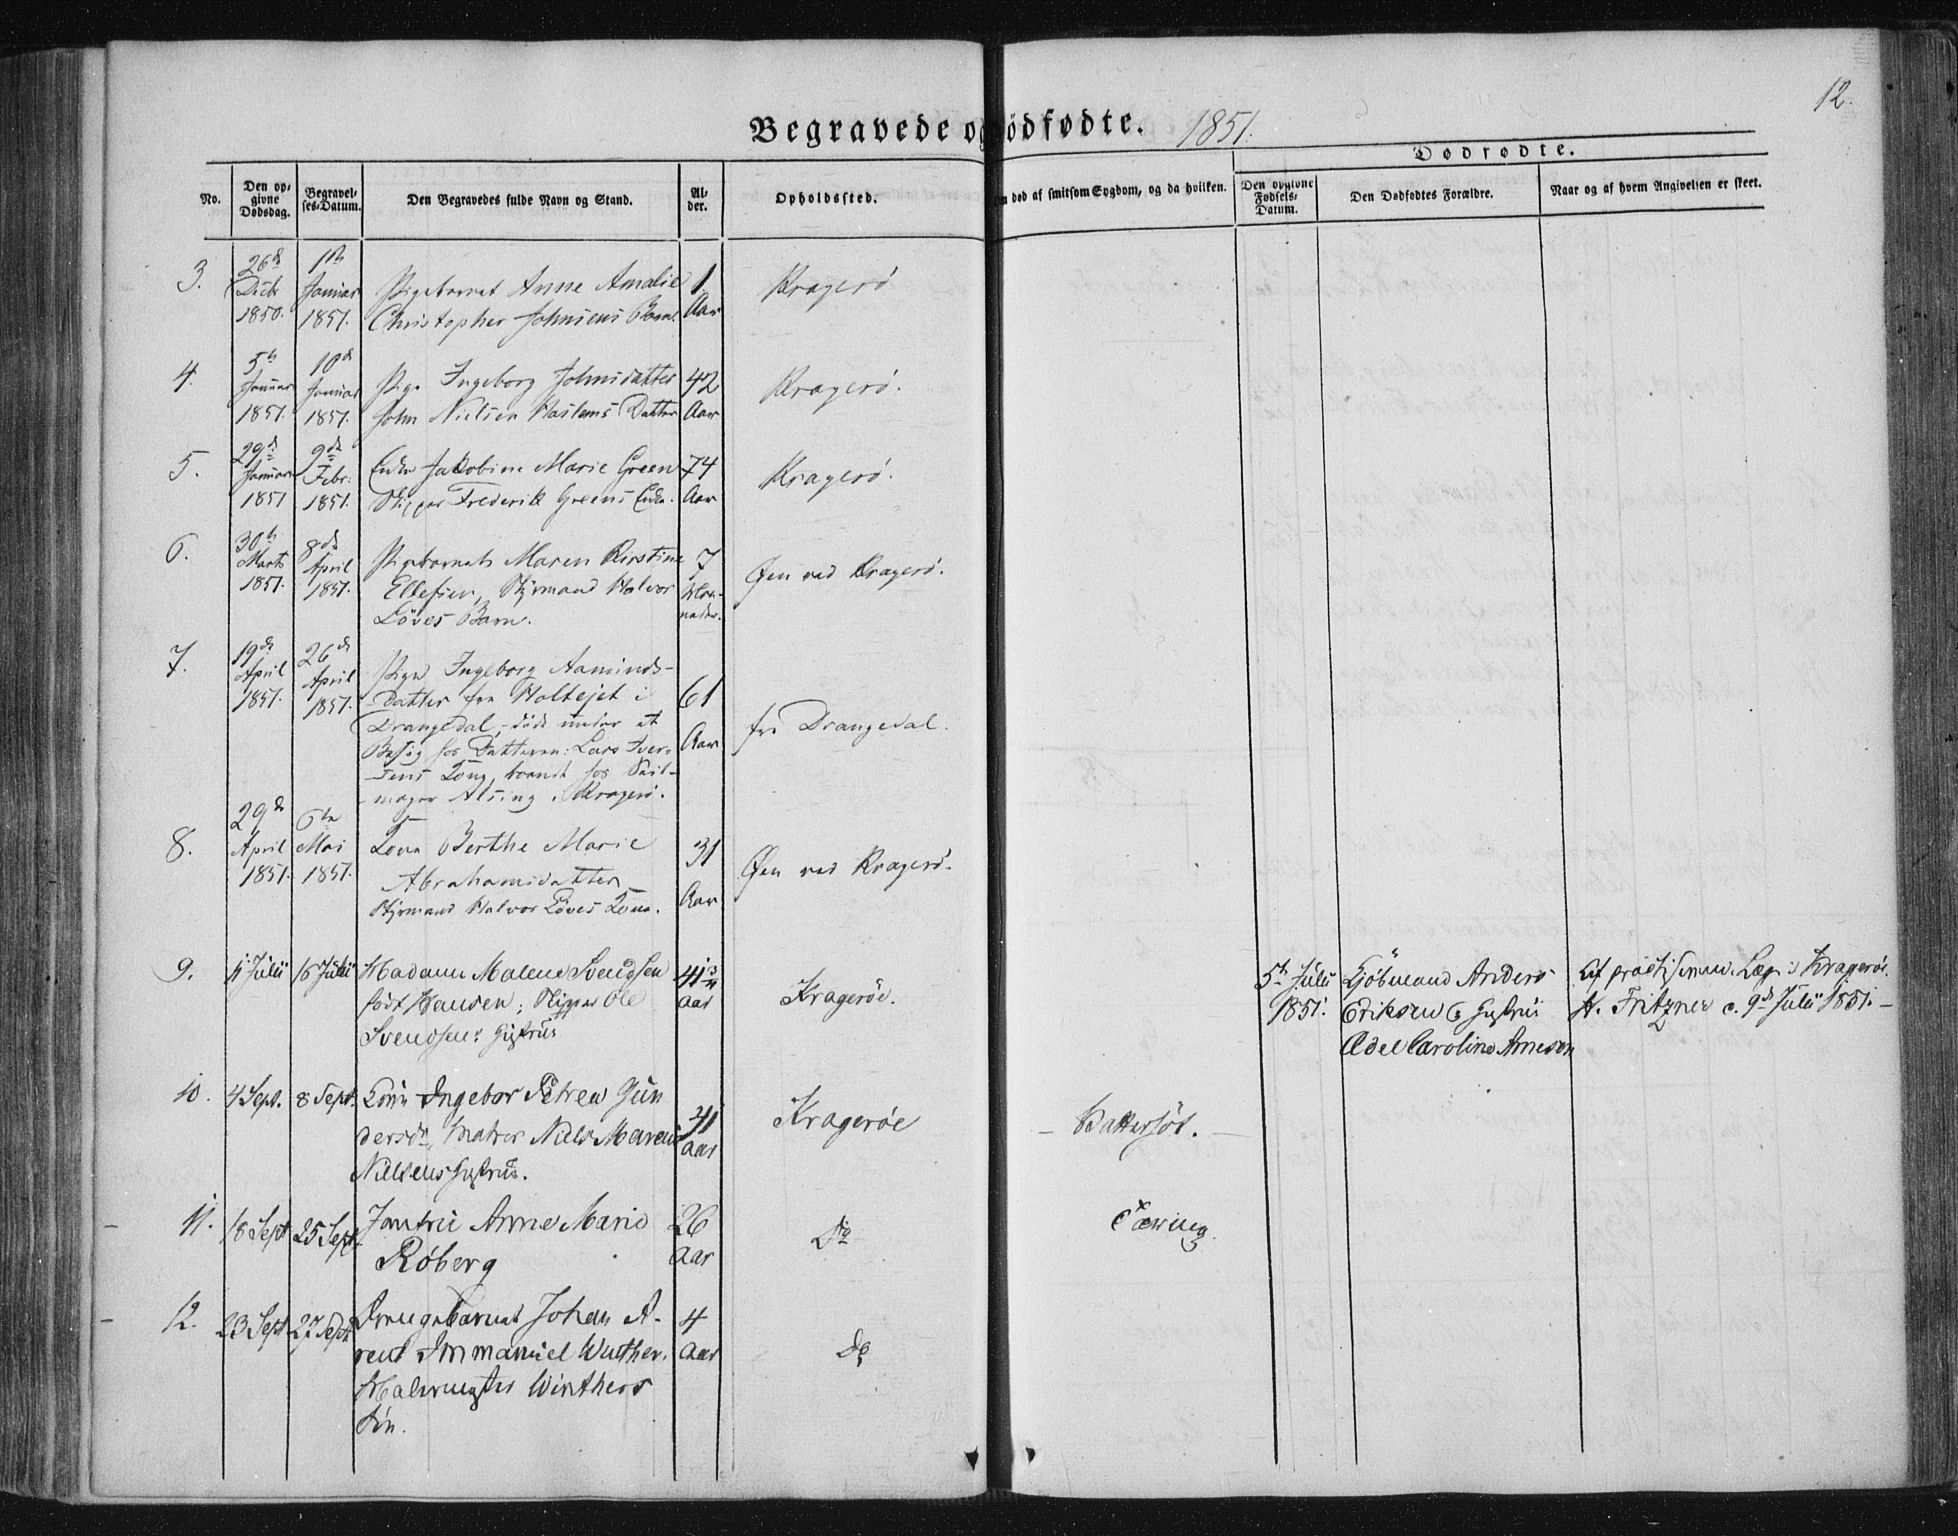 12.
Begravede o ødfødte. 1851.
Dødfødte.
No.
Den op-
givne
Dødsdag.
Begravel-
ses-Datum.
Den Begravedes fulde Navn og Stand.
Al-
der.
Opholdssted.
død af smitsom Sygdom, og da hvilken.
Den opgivne
Fødsels-
Datum.
Den Dødfødtes Forældre.
Naar og af hvem Angivelsen er skeet.
3.
26de
Decbr
1850.
1ste
Januar
1851.
Pigebarnet Anne Amalie
Christopher Johnsens Barn.
1
Aar
Kragerö
4.
5te
Januar
1851.
10de
Januar
1851.
Pige Ingeborg Johnsdatter
John Nielsen Datter
42
Aar
Kragerö.
5.
29de
Januar
1851
9de
Febr.
1851.
Enke Jakobine Marie Green
Skipper Frederik Greens Enke.
74
Aar
Kragerö.
6.
30te
Marts
1851.
8de
April
1851.
Pigebarnet Maren Kirstine
Ellefsen, Styrmand Halvor
Löves Barn.
7
Maa-
neder.
Öen ved Kragerö.
7.
19de
April
1851.
26de
April
1851.
Pige Ingeborg Aamunds-
Datter fra Holtejet i
Drangedal, döde under et
Besög hos Datteren: Lars Iver-
sens Kone, boende hos Seil-
mager Alsing i Kragerö.
61
Aar
fra Drangedal.
8.
29de
April
1851.
6te
Mai
1851.
Kone Berthe Marie
Abrahamsdatter
Styrmand Halvor Löves Kone.
31
Aar
Öen ved Kragerö.
9.
11 Julii
16 Julii
Madame Malene Svendsen
födt Hansen; Skipper Ole
Svendsens Hustrue
41
Aar
Kragerøe.
5te Julii
1851.
Eriksen & Hustrue
Ædel Caroline Arnesen
Af practiserende Læge i Kragerøe
H. Fritzner d. 9de Julii 1851.
10.
4 Sept.
8 Sept.
Kone Ingebor Petrea Gun
dersdr, Matros Niels Marcus
Nielsens Hustrue.
41
Aar
Kragerøe
11.
18 Sept
25 Sept.
Jomfru Anne Marie
Røberg
26
Aar
Do
Tæring
12.
23 Sept
27 Sept.
Drengebarnet Johan A-
rent Immanuel Winther.
Winthers
Søn.
4
Aar
Do